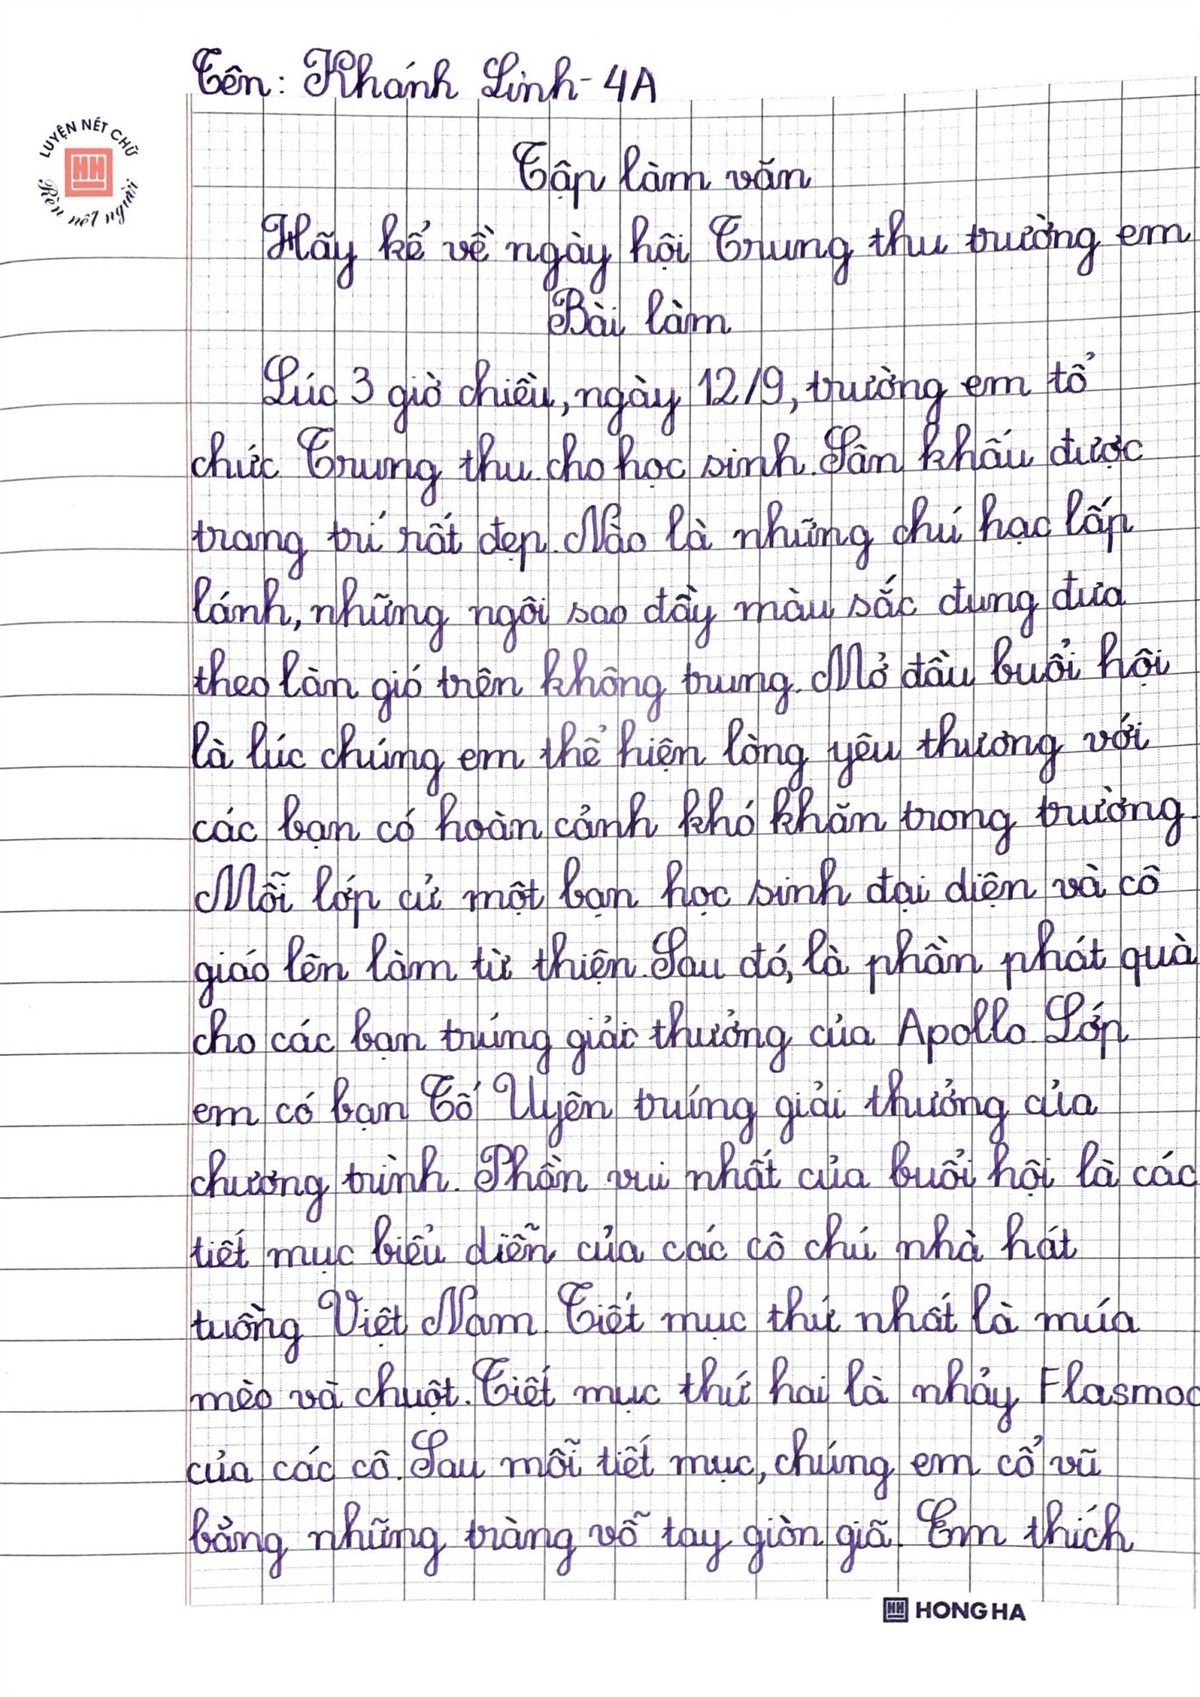 Tên: Khánh Linh - 4A
LUYỆN NÉT CHỮ
Rèn nết người
Tập làm văn
Hãy kể về ngày hội Trung thu trường em
Bài làm
Lúc 3 giờ chiều, ngày 12/9, trường em tổ
chức Trung thu cho học sinh. Sân khấu được
trang trí rất đẹp. Nào là những chú hạc lấp
lánh, những ngôi sao đầy màu sắc đung đưa
theo làn gió trên không trung. Mở đầu buổi hội
là lúc chúng em thể hiện lòng yêu thương với
các bạn có hoàn cảnh khó khăn trong trường.
Mỗi lớp cử một bạn học sinh đại diện và cô
giáo lên làm từ thiện. Sau đó, là phần phát quà
cho các bạn trúng giải thưởng của Apollo. Lớp
em có bạn Tố Uyên trúng giải thưởng của
chương trình. Phần vui nhất của buổi hội là các
tiết mục biểu diễn của các cô chú nhà hát
tuồng Việt Nam. Tiết mục thứ nhất là múa
mèo và chuột. Tiết mục thứ hai là nhảy Flasmoc
của các cô. Sau mỗi tiết mục, chúng em cổ vũ
bằng những tràng vỗ tay giòn giã. Em thích
HONG HA